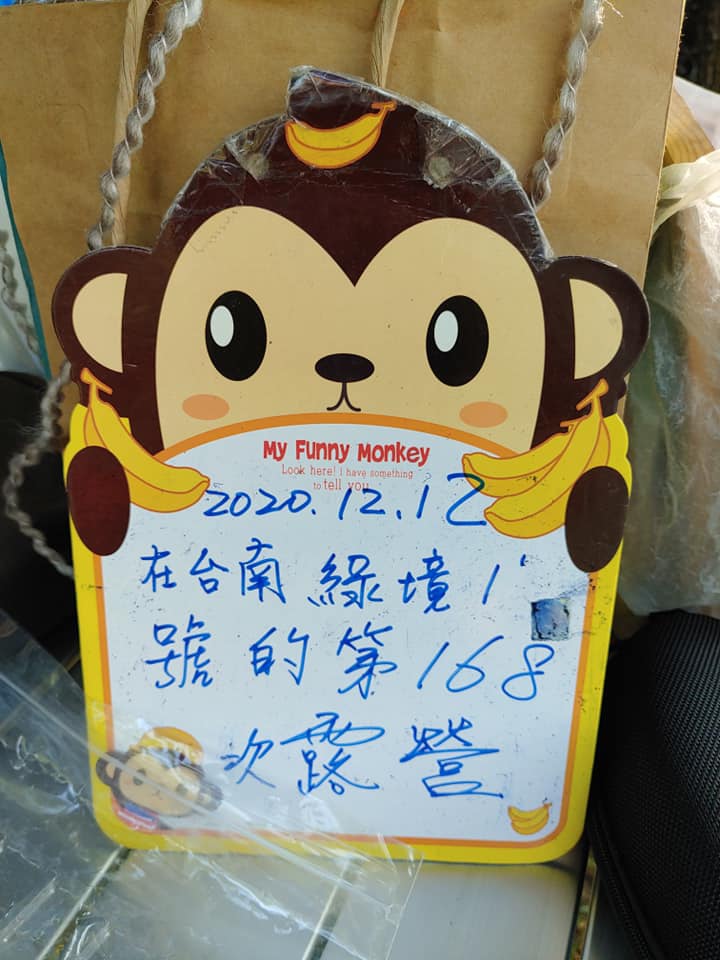 My Funny Monkey
Look here! I have something
to tell you
2020.12.12
在台南綠境1
號的第168
次露營